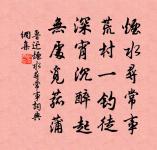 煙水尋常事
荒村一釣徒
深宵沉醉起
無處覓菰蒲
魯迅煙水尋常事詞典
網集